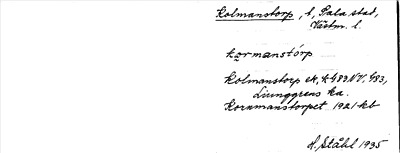 Kolmanstorp, t, Sala stad,
Västm. l.
kormanstórp
Kolmanstorp ek. 4:489 IV, 483,
Ljunggrens ka.
Kornmanstorpet 1921 kb
H. Ståhl 1935